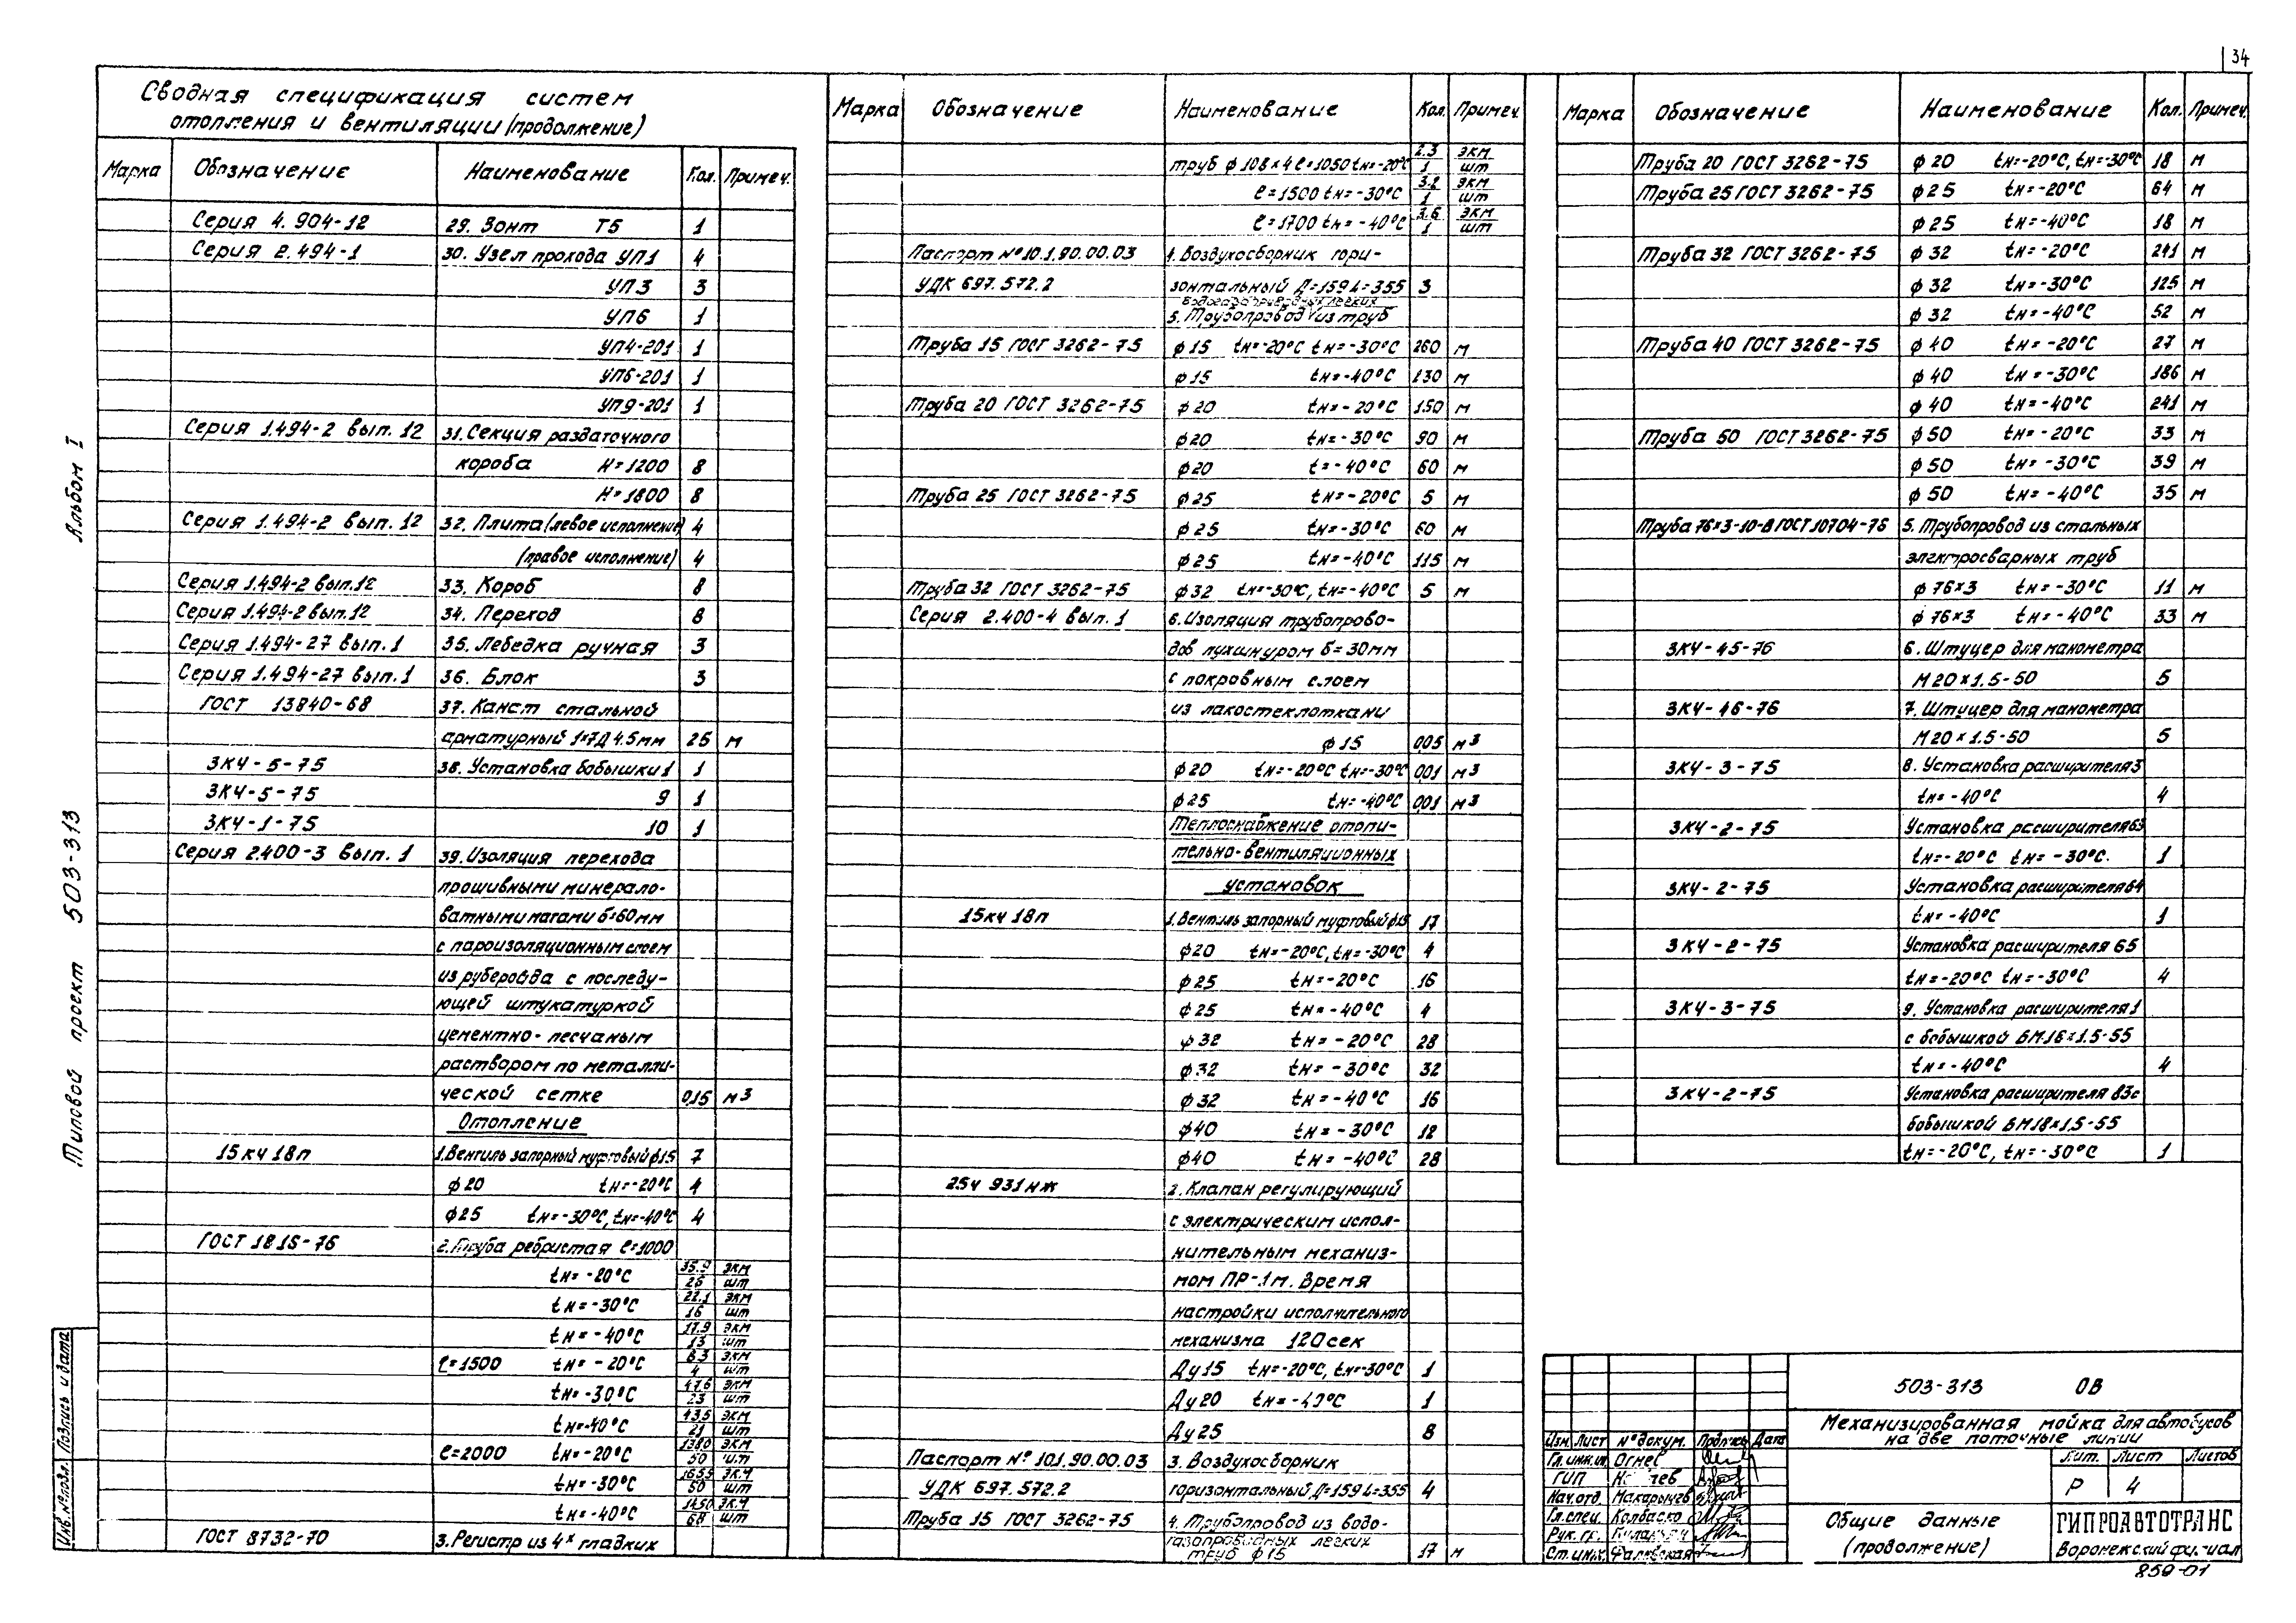 34
Сводная спецификация систем
отопления и вентиляции (продолжение)
Марка Обозначение Наименование Кол. Примеч.
Серия 4.904-12 29. Зонт Т5 1
Серия 2.494-1 30. Узел прохода УП1 4
УП3 3
УП6 1
УП4-201 1
УП6-201 1
УП9-201 1
Серия 1.494-2 вып. 12 31. Секция раздаточного
короба H=1200 8
H=1800 8
Серия 1.494-2 вып. 12 32. Плита (левое исполнение) 4
(правое исполнение) 4
Серия 1.494-2 вып. 12 33. Короб 8
Серия 1.494-2 вып. 12 34. Переход 8
Серия 1.494-27 вып. 1 35. Лебедка ручная 3
Серия 1.494-27 вып. 1 36. Блок 3
ГОСТ 13840-68 37. Канат стальной
арматурный 1×7Д 4.5мм 25 м
ЗКЧ-5-75 38. Установка бобышки 1 1
ЗКЧ-5-75 9 1
ЗКЧ-1-75 10 1
Серия 2.400-3 вып. 1 39. Изоляция перехода
прошивными минерало-
ватными матами б=60мм
с пароизоляционным слоем
из рубероида с последу-
ющей штукатуркой
цементно-песчаным
раствором по металли-
ческой сетке 0,15 м3
Отопление
15кч 18п 1. Вентиль запорный муфтовый ф15 7
ф20 tн=-20°С 4
ф25 tн=-30°С, tн=-40°С 4
ГОСТ 1816-76 2. Труба ребристая ℓ=1000
tн=-20°С 35.9 экм
26 шт
tн=-30°С 22.1 экм
16 шт
tн=-40°С 17.9 экм
13 шт
ℓ=1500 tн=-20°С 8.3 экм
4 шт
tн=-30°С 47.6 экм
23 шт
tн=-40°С 43.5 экм
21 шт
ℓ=2000 tн=-20°С 138.0 экм
50 шт
tн=-30°С экм
шт
tн=-40°С экм
68 шт
ГОСТ 8732-70 3. Регистр из 4х гладких
Марка Обозначение Наименование Кол. Примеч.
труб ф 108×4 ℓ=1050 tн=-20°С 2.3 экм
1 шт
ℓ=1500 tн=-30°С 3.2 экм
1 шт
ℓ=1700 tн=-40°С 3.6 экм
1 шт
Паспорт № 10.1.90.00.03 4. Воздухосборник гори-
УДК 697.572.2 зонтальный Д=159 L=355 3
водогазопроводных легких
5. Трубопровод из труб
Труба 15 ГОСТ 3262-75 ф15 tн=-20°С tн=-30°С 260 м
ф15 tн=-40°С 130 м
Труба 20 ГОСТ 3262-75 ф20 tн=-20°С 150 м
ф20 tн=-30°С 90 м
ф20 t=-40°С 60 м
Труба 25 ГОСТ 3262-75 ф25 tн=-20°С 5 м
ф25 tн=-30°С 60 м
ф25 tн=-40°С 115 м
Труба 32 ГОСТ 3262-75 ф32 tн=-30°С, tн=-40°С 5 м
Серия 2.400-4 вып. 1 6. Изоляция трубопрово-
дов пухшнуром б=30мм
с покровным слоем
из лакостеклоткани
ф15 0,05 м3
ф20 tн=-20°С tн=-30°С 0,01 м3
ф25 tн=-40°С 0,01 м3
Теплоснабжение отопи-
тельно-вентиляционных
установок
15кч 18п 1. Вентиль запорный муфтовый ф15 17
ф20 tн=-20°С, tн=-30°С 4
ф25 tн=-20°С 16
ф25 tн=-40°С 4
ф32 tн=-20°С 28
ф32 tн=-30°С 32
ф32 tн=-40°С 16
ф40 tн=-30°С 12
ф40 tн=-40°С 28
25ч 931нж 2. Клапан регулирующий
с электрическим испол-
нительным механиз-
мом ПР-1м. Время
настройки исполнительного
механизма 120сек
Ду15 tн=-20°С, tн=-30°С 1
Ду20 tн=-40°С 1
Ду25 8
Паспорт № 10.1.90.00.03 3. Воздухосборник
УДК 697.572.2 горизонтальный Д=159 L=355 4
Труба 15 ГОСТ 3262-75 4. Трубопровод из водо-
газопроводных легких
труб ф15 17 м
Марка Обозначение Наименование Кол. Примеч.
Труба 20 ГОСТ 3262-75 ф20 tн=-20°С, tн=-30°С 18 м
Труба 25 ГОСТ 3262-75 ф25 tн=-20°С 64 м
ф25 tн=-40°С 18 м
Труба 32 ГОСТ 3262-75 ф32 tн=-20°С 241 м
ф32 tн=-30°С 125 м
ф32 tн=-40°С 52 м
Труба 40 ГОСТ 3262-75 ф40 tн=-20°С 27 м
ф40 tн=-30°С 186 м
ф40 tн=-40°С 241 м
Труба 50 ГОСТ 3262-75 ф50 tн=-20°С 33 м
ф50 tн=-30°С 39 м
ф50 tн=-40°С 35 м
Труба 76×3-10-В ГОСТ 10704-76 5. Трубопровод из стальных
электросварных труб
ф76×3 tн=-30°С 11 м
ф76×3 tн=-40°С 33 м
ЗКЧ-45-76 6. Штуцер для манометра
М20×1.5-50 5
ЗКЧ-46-76 7. Штуцер для манометра
М20×1.5-50 5
ЗКЧ-3-75 8. Установка расширителя 3
tн=-40°С 4
ЗКЧ-2-75 Установка расширителя 63
tн=-20°С tн=-30°С. 1
ЗКЧ-2-75 Установка расширителя 64
tн=-40°С 1
ЗКЧ-2-75 Установка расширителя 65
tн=-20°С tн=-30°С 4
ЗКЧ-3-75 9. Установка расширителя 1
с бобышкой БМ16×1.5-55
tн=-40°С 4
ЗКЧ-2-75 Установка расширителя 83с
бобышкой БМ18×1.5-55
tн=-20°С, tн=-30°С 1
Альбом I
Типовой проект 503-313
Инв. № подл. Подпись и дата
503-313 ОВ
Механизированная мойка для автобусов
на две поточные линии
Изм. Лист № докум. Подпись Дата
Гл. инж. ин. Огнев
ГИП
Нач. отд. Макарычев
Гл. спец. Колбаско
Рук. гр.
Ст. инж. Фалевская
Лит. Лист Листов
Р 4
Общие данные
(продолжение)
ГИПРОАВТОТРАНС
Воронежский филиал
859-01